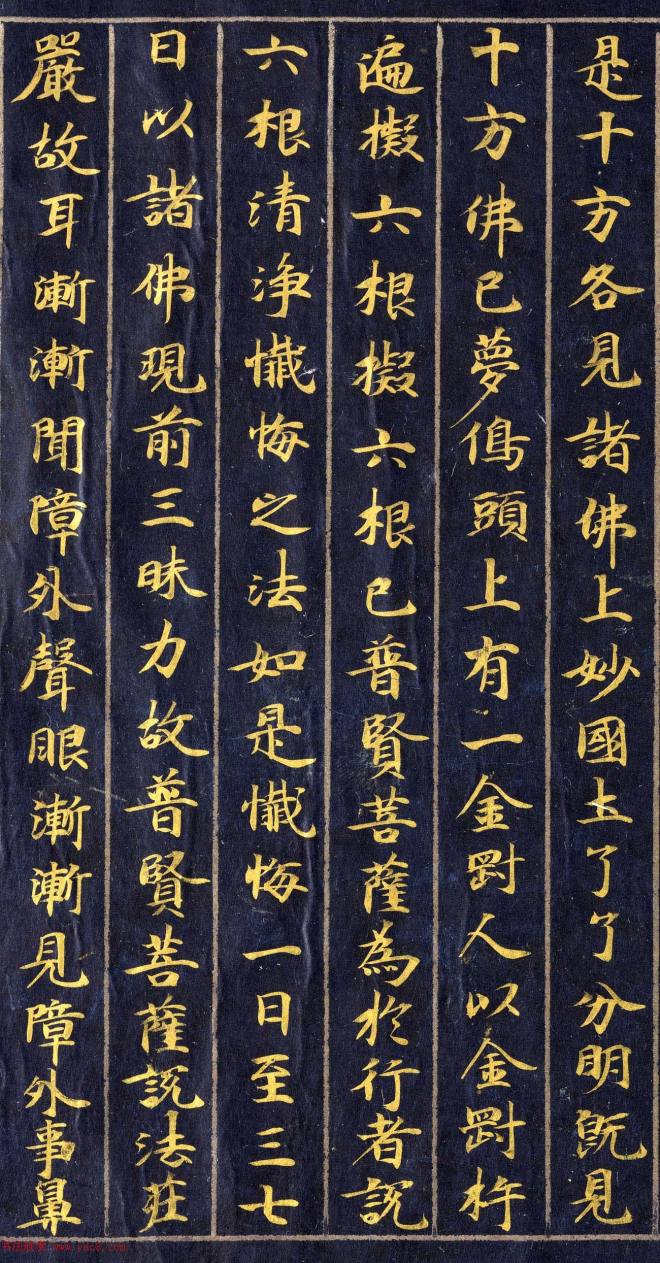 是十方各見諸佛上妙國土了了分明既見
十方佛已夢像頭上有一金剛人以金剛杵
遍擬六根擬六根已普賢菩薩為於行者說
六根清淨懺悔之法如是懺悔一日至三七
日以諸佛現前三昧力故普賢菩薩說法莊
嚴故耳漸漸聞障外聲眼漸漸見障外事鼻
书法欣赏 www.yac8.com